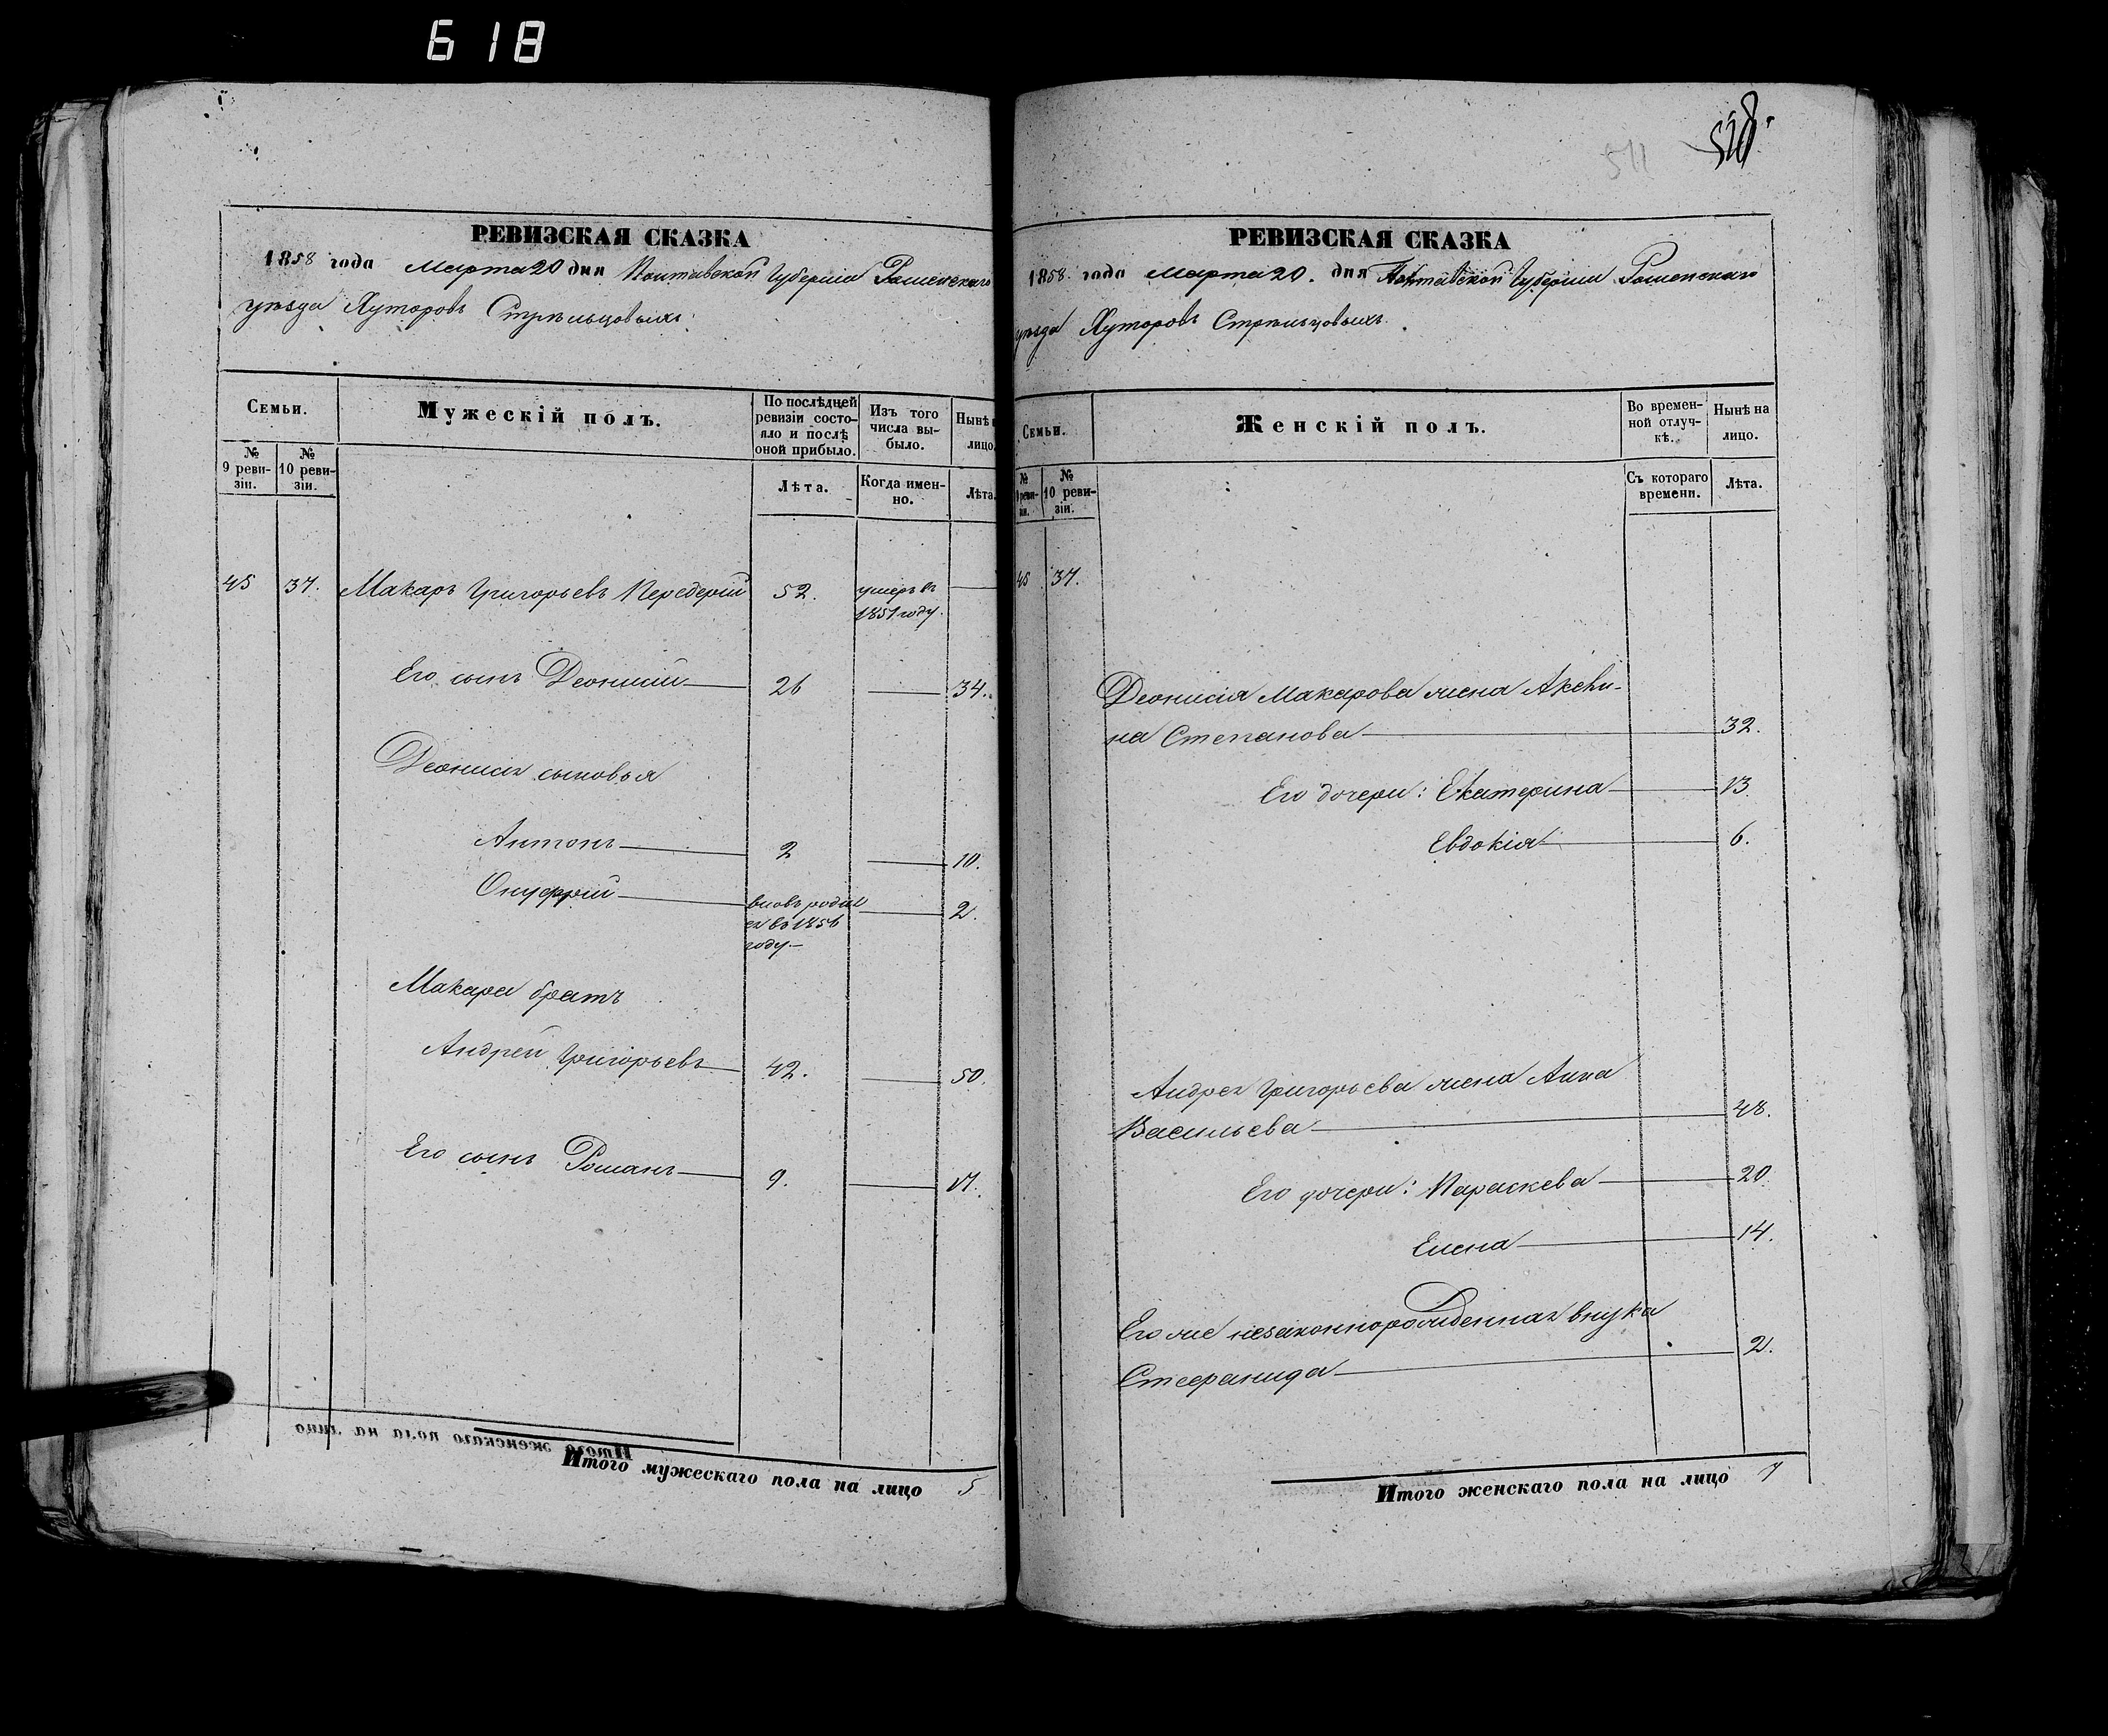 618
РЕВИЗСКАЯ СКАЗКА
1858 года Марта 20 дня Полтавской Губерніи Роменскаго
уѣзда Хуторовъ Стрѣльцовыхъ
Семьи.
Мужескій полъ.
По послѣдней ревизіи состояло и послѣ оной прибыло.
Изъ того числа выбыло.
Нынѣ
лицо.
№ 9 ревизіи.
№ 10 ревизіи.
Лѣта.
Когда именно.
Лѣта.
45 37. Макаръ Григорьевъ Передерій 52. умеръ въ
1851 году.
Его сынъ Деонисій 26 34.
Деонисія сыновья
Антонъ 2 10.
Онуфрій вновь родил 2.
ся въ 1856
году
Макара братъ
Андрей Григорьевъ 42. 50.
Его сынъ Романъ 9. 17.
Итого женскаго пола на лицо
Итого мужескаго пола на лицо 5
511 518
РЕВИЗСКАЯ СКАЗКА
1858. года Марта 20. дня Полтавской Губерніи Роменскаго
уѣзда Хуторовъ Стрѣльцовыхъ.
Семьи.
Женскій полъ.
Во временной отлучкѣ.
Нынѣ на лицо.
№ 9 ревизіи.
№ 10 ревизіи.
Съ котораго времени.
Лѣта.
45 37.
Деонисія Макарова жена Аксени-
на Степанова 32.
Его дочери: Екатерина 13.
Евдокія 6.
Андрея Григорьева жена Анна
Васильева 48.
Его дочери: Параскева 20.
Елена 14.
Его же незаконнорожденная внука
Стефанида 2.
Итого женскаго пола на лицо 7